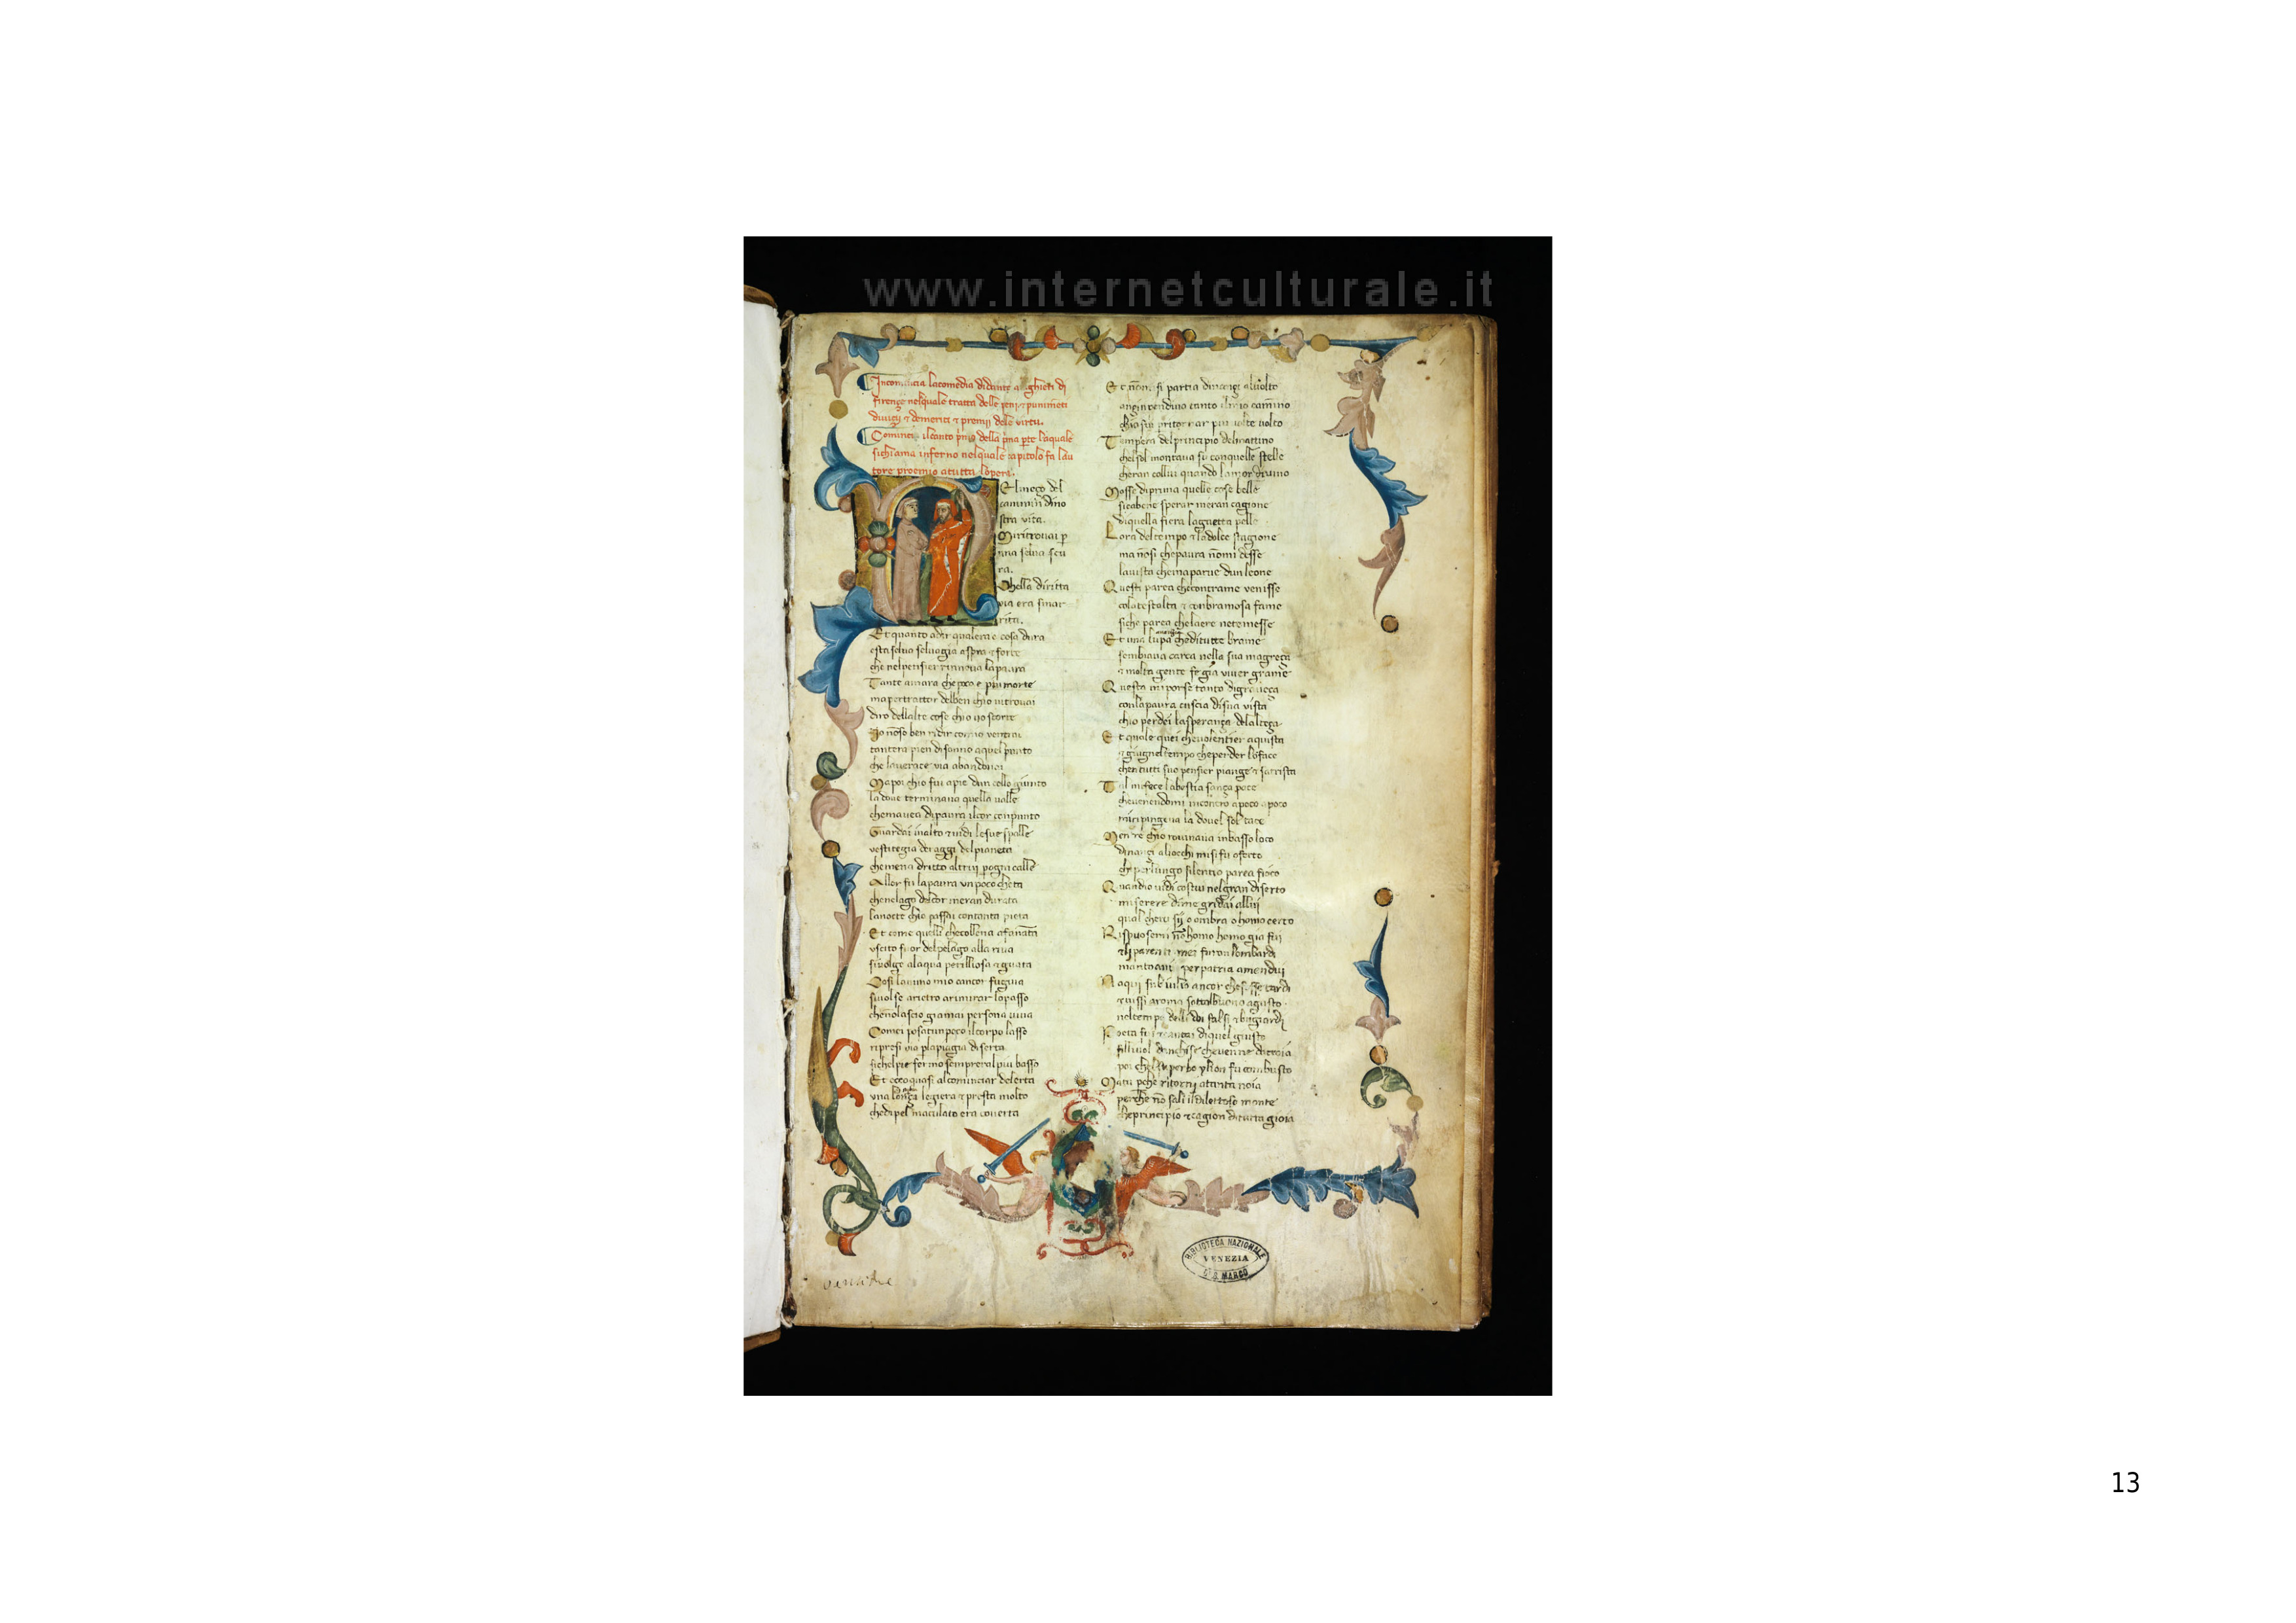 www.internetculturale.it
Incomincia lacomedia didante alighieri di
firenze nelquale tratta delle pene et punimeti
di vicij et demeriti et premij dele virtu.
Comincia ilcanto pmo della pma pte laquale
sichiama inferno nelquale capitolo fa lau
tore proemio atutta lopera.
El mezo del
camin di no
stra vita.
Mi ritrovai p
una selva scu
ra.
Chella diritta
via era smar
rita.
Et quanto adir qualera e cosa dura
esta selva selvagia aspra et forte
che nelpensier rinnova lapaura
Tante amara che poco e piu morte
ma pertrattar delben chio vitrovai
diro dellaltre cose chio vo scorte
Io noso ben ridir comio ventrai
tantera pien disonno aquel punto
che laverace via abandonai
Mapoi chio fui apie dun colle giunto
la dove terminava quella valle
chemavea dipaura ilcor conpunto
Guardai inalto et vidi lesue spalle
vestite gia deraggi delpianeta
chemena dritto altrui pogni calle
Allor fu lapaura unpoco cheta
chenelago delcor meran durata
lanotte chio passai contanta pieta
Et come quelli checollena afanata
uscito fuor delpelago alla riva
sivolge alaqua perilliosa et guata
Cosi lanimo mio ancor fugiva
sivolse arietro arimirar lopasso
chenolascio giamai persona viva
Comei posatunpoco ilcorpo lasso
ripresi via plapiagia diserta
sichelpie fermo sempreral piu basso
Et ecco quasi alcominciar delerta
una lonza legiera et presta molto
chedipel maculato era coverta
Et non mi si partia dinanzi alvolto
anzi inpendiva tanto ilmio camino
chio fui pritornar piu volte volto
Tempera delprincipio delmattino
chelsol montava su conquelle stelle
cheran collui quando lamor divino
Mosse diprima quelle cose belle
sicabene sperar meran cagione
diquella fiera lagaetta pelle
Lora deltempo et ladolce stagione
ma nosi chepaura nomi desse
lavista chemaparve dunleone
Questi parea checontrame venisse
colatestalta et conbramosa fame
siche parea chelaere netemesse
Et una lupa cheditutte brame
sembiava carca nella sua magreza
et molta gente fe gia viver grame
Questa mi porse tanto digraveza
conlapaura cuscia disua vista
chio perdei lasperanza delalteza
Et quale quei chevolentier aquista
et giugneltempo cheperder loface
chen tutti suo pensier piange et satrista
Tal mifece labestia sanza pace
chevenendomi incontro apoco apoco
miripingeva la dovel sol tace
Mentre chio rovinava inbasso loco
dinanzi aliocchi misi fu oferto
che perlungo silentio parea fioco
Quandio vidi costui nelgran diserto
miserere dime gridai allui
qual chetu sij o ombra o homo certo
Rispuosemi no homo homo gia fui
et li parenti mei furon lombardi
mantoani per patria amendui
Naqui sub iulio ancor
et vissi aroma sottolbuono agusto
neltempo delli dei falsi et bugiardi
Poeta fui et cantai diquel giusto
filliuol danchise chevenne ditroia
poi chel superbo ylion fu combusto
Matu pche ritorni atanta noia
perche no sali ildilettoso monte
cheprincipio et cagion ditutta gioia
BIBLIOTECA NAZIONALE
VENEZIA
DI S. MARCO
13